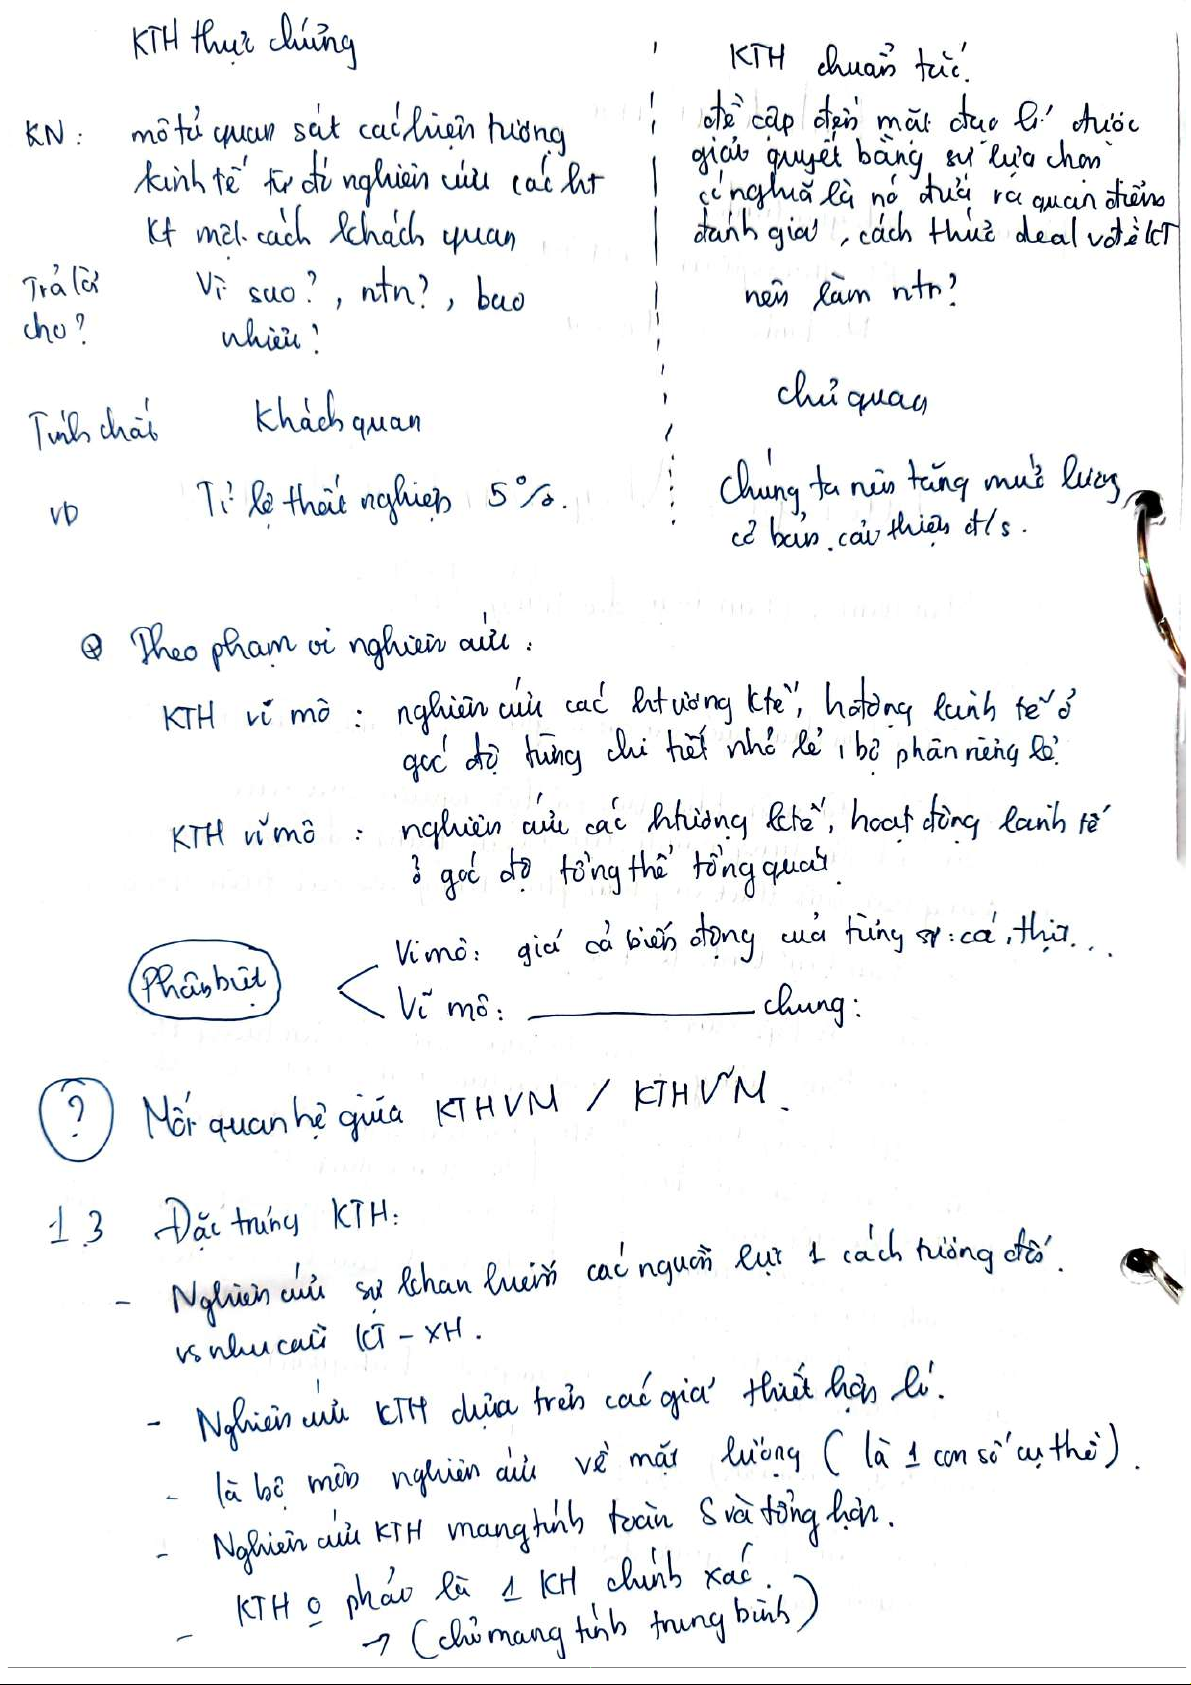 KTH thực chứng
KTH chuẩn tắc.
KN: mô tả quan sát các hiện tượng
kinh tế từ đó nghiên cứu các ht
Kt một cách khách quan
đề cập đến mặt đạo lí được
giải quyết bằng sự lựa chọn
có nghĩa là nó đưa ra quan điểm
đánh giá, cách thức deal vđề KT
Trả lời
cho?
Vì sao?, ntn?, bao
nhiêu?
nên làm ntn?
Tính chất
Khách quan
chủ quan
VD
Tỉ lệ thất nghiệp 5%.
Chúng ta nên tăng mức lương
cơ bản, cải thiện đ/s.
Theo phạm vi nghiên cứu:
KTH vi mô: nghiên cứu các htượng ktế, hđộng kinh tế ở
góc độ từng chi tiết nhỏ lẻ, bộ phận riêng lẻ.
KTH vĩ mô: nghiên cứu các htượng ktế, hoạt động kinh tế
ở góc độ tổng thể tổng quát.
Phân biệt
Vi mô: giá cả biến động của từng sp: cá, thịt...
Vĩ mô: ________ chung:
? Mối quan hệ giữa KTHVM / KTHVM.
1.3 Đặc trưng KTH:
- Nghiên cứu sự khan hiếm các nguồn lực 1 cách tương đối.
vs nhu cầu KT - XH.
- Nghiên cứu KTH dựa trên các giả thiết hợp lí.
- là bộ môn nghiên cứu về mặt lượng (là 1 con số cụ thể).
- Nghiên cứu KTH mang tính toàn S và tổng hợp.
- KTH o phải là 1 KH chính xác.
→ (chỉ mang tính trung bình)